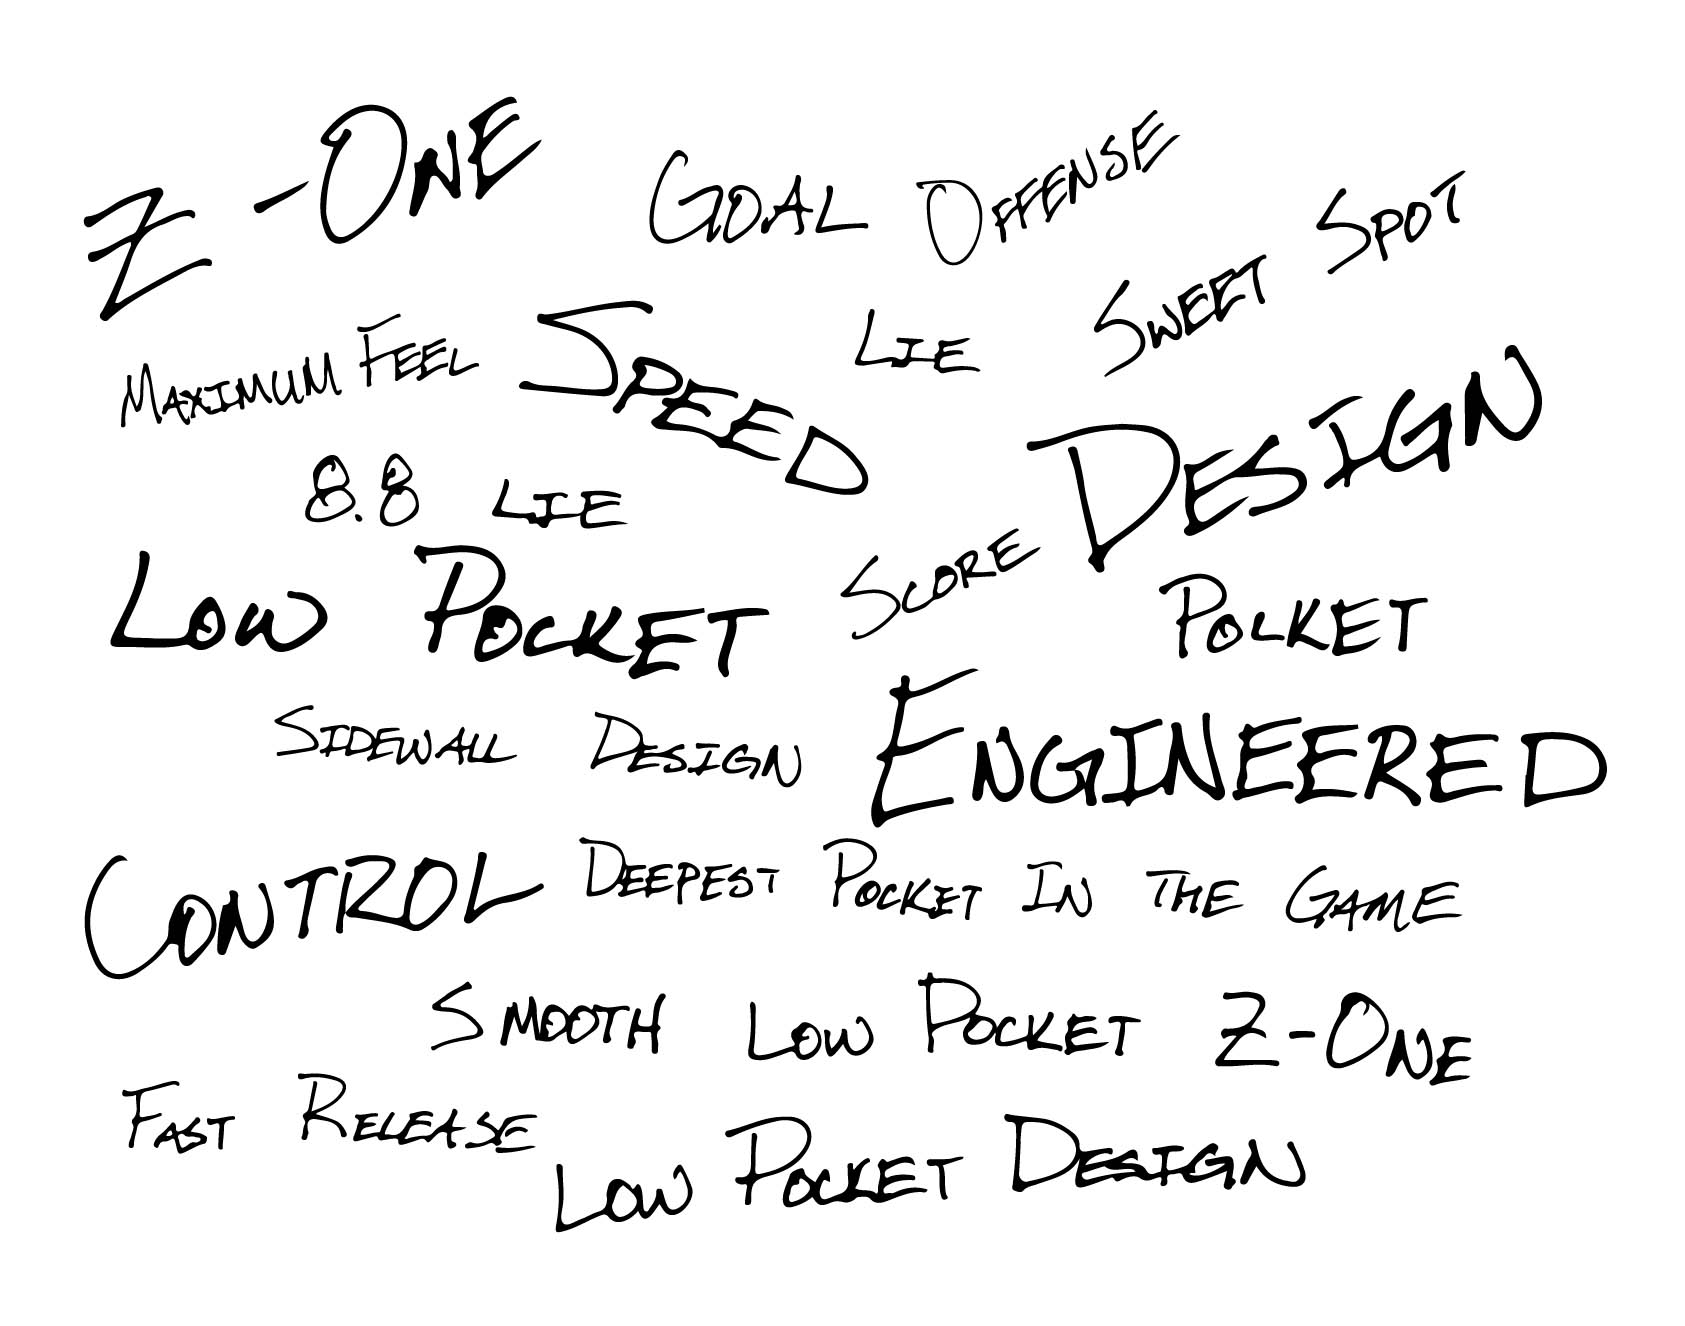 Z-ONE
GOAL OFFENSE
SWEET SPOT
MAXIMUM FEEL
SPEED
LIE
DESIGN
8.8 LIE
SCORE
LOW POCKET
POCKET
SIDEWALL DESIGN
ENGINEERED
CONTROL
DEEPEST POCKET IN THE GAME
SMOOTH LOW POCKET Z-ONE
FAST RELEASE
LOW POCKET DESIGN